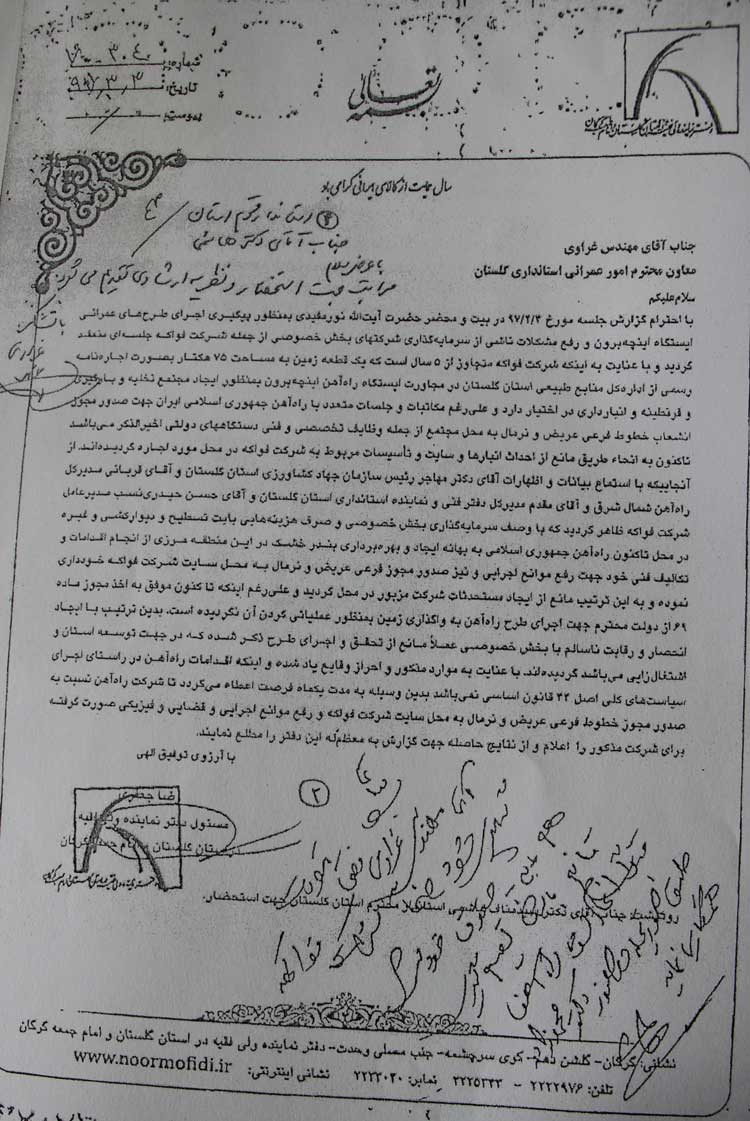 بسمه تعالی
شماره: ۷۹۰۰۳۰۴۰
تاریخ: ۹۷/۳/۳
پیوست:
سال حمایت از کالای ایرانی گرامی باد
استاندار محترم استان
جناب آقای دکتر هاشمی
با عرض سلام
مراتب جهت استحضار و نظریه ارشادی تقدیم می گردد
با تشکر
غراوی
جناب آقای مهندس غراوی
معاون محترم امور عمرانی استانداری گلستان
سلام علیکم
با احترام گزارش جلسه مورخ ۹۷/۲/۳ در بیت و محضر حضرت آیت‌الله نورمفیدی بمنظور پیگیری اجرای طرح‌های عمرانی
ایستگاه اینچه‌برون و رفع مشکلات ناشی از سرمایه‌گذاری شرکتهای بخش خصوصی از جمله شرکت فواکه جلسه‌ای منعقد
گردید و با عنایت به اینکه شرکت فواکه متجاوز از ۵ سال است که یک قطعه زمین به مساحت ۷۵ هکتار بصورت اجاره‌نامه
رسمی از اداره‌کل منابع طبیعی استان گلستان در مجاورت ایستگاه راه‌آهن اینچه‌برون بمنظور ایجاد مجتمع تخلیه و بارگیری
و قرنطینه و انبارداری در اختیار دارد و علی‌رغم مکاتبات و جلسات متعدد با راه‌آهن جمهوری اسلامی ایران جهت صدور مجوز
انشعاب خطوط فرعی عریض و نرمال به محل مجتمع از جمله وظایف تخصصی و فنی دستگاههای دولتی اخیرالذکر می‌باشد
تاکنون به انحاء طریق مانع از احداث انبارها و سایت و تأسیسات مربوط به شرکت فواکه در محل مورد اجاره گردیده‌اند. از
آنجاییکه با استماع بیانات و اظهارات آقای دکتر مهاجر رئیس سازمان جهاد کشاورزی استان گلستان و آقای قربانی مدیرکل
راه‌آهن شمال شرق و آقای مقدم مدیرکل دفتر فنی و نماینده استانداری استان گلستان و آقای حسن حیدری‌نسب مدیرعامل
شرکت فواکه ظاهر گردید که با وصف سرمایه‌گذاری بخش خصوصی و صرف هزینه‌هایی بابت تسطیح و دیوارکشی و غیره
در محل تاکنون راه‌آهن جمهوری اسلامی به بهانه ایجاد و بهره‌برداری بندر خشک در این منطقه مرزی از انجام اقدامات و
تکالیف فنی خود جهت رفع موانع اجرایی و نیز صدور مجوز فرعی عریض و نرمال به محل سایت شرکت فواکه خودداری
نموده و به این ترتیب مانع از ایجاد مستحدثات شرکت مزبور در محل گردید و علی‌رغم اینکه تا کنون موفق به اخذ مجوز ماده
۶۹ از دولت محترم جهت اجرای طرح راه‌آهن به واگذاری زمین بمنظور عملیاتی کردن آن نگردیده است. بدین ترتیب با ایجاد
انحصار و رقابت ناسالم با بخش خصوصی عملاً مانع از تحقق و اجرای طرح ذکر شده که در جهت توسعه استان و
اشتغال‌زایی می‌باشد گردیده‌اند. با عنایت به موارد مذکور و احراز وقایع یاد شده و اینکه اقدامات راه‌آهن در راستای اجرای
سیاست‌های کلی اصل ۴۴ قانون اساسی نمی‌باشد بدین وسیله به مدت یکماه فرصت اعطاء می‌گردد تا شرکت راه‌آهن نسبت به
صدور مجوز خطوط فرعی عریض و نرمال به محل سایت شرکت فواکه و رفع موانع اجرایی و قضایی و فیزیکی صورت گرفته
برای شرکت مذکور را اعلام و از نتایج حاصله جهت گزارش به معظم‌له این دفتر را مطلع نمایند.
با آرزوی توفیق الهی
رضا جعفری
مسئول دفتر نماینده ولی فقیه
در استان گلستان و امام جمعه گرگان
۲
رونوشت: جناب آقای دکتر سید مناف هاشمی استاندار محترم استان گلستان جهت استحضار.
نشانی: گرگان- گلشن دهم- کوی سرچشمه- جنب مصلی وحدت- دفتر نماینده ولی فقیه در استان گلستان و امام جمعه گرگان
تلفن: ۲۲۲۲۹۷۶ - ۲۲۲۵۲۳۳ نمابر: ۲۲۳۳۰۳۰ نشانی اینترنتی: www.noormofidi.ir